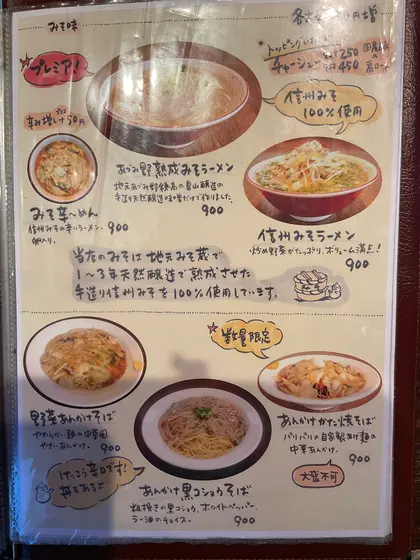 みそ味
プレミア！
辛み増し 50円
トッピング
250
チャーシュー
450
信州みそ
100%使用
あづみ野熟成みそラーメン
手造り天然醸造味噌だけで作りました。
900
みそ辛〜めん
信州みその辛いラーメン。
卵入り。
900
信州みそラーメン
炒め野菜がたっぷり、ボリューム満点！
900
当店のみそは地元みそ蔵で
1〜3年天然醸造で熟成させた
手造り信州みそを100%使用しています。
数量限定
野菜あんかけそば
やわらかい麺の中華風
やさいあんかけ。
900
けっこう辛口です！
あんかけ黒コショウそば
粗挽きの黒コショウ、ホワイトペッパー、
ラー油のチョイス。
900
あんかけかた焼そば
パリパリの自家製揚げ麺の
中華あんかけ。
900
大盛不可